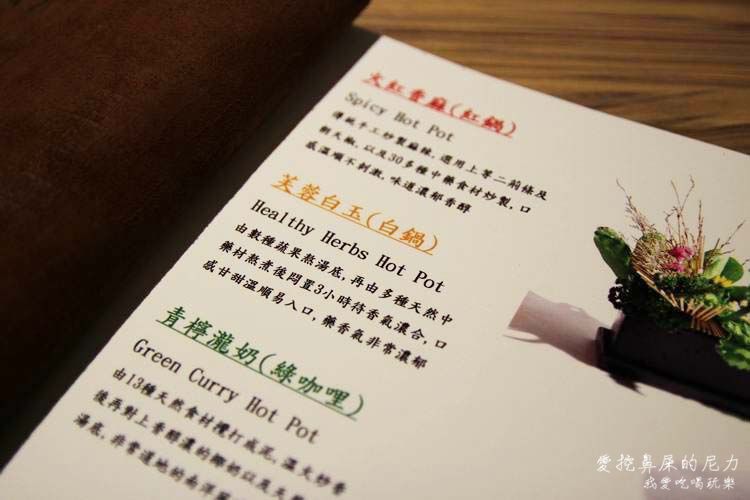 大紅香麻(紅鍋)
Spicy Hot Pot
傳統手工炒製麻辣,選用上等二荊條及
朝天椒,以及30多種中藥食材炒製,口
感溫順不刺激,味道濃郁香醇
芙蓉白玉(白鍋)
Healthy Herbs Hot Pot
由數種蔬果熬湯底,再由多種天然中
藥材熬煮後悶置3小時待香氣濃合,口
感甘甜溫順易入口,藥香氣非常濃郁
青檸瀧奶(綠咖哩)
Green Curry Hot Pot
由13種天然食材攪打成泥,溫火炒香
後再對上香醇濃的椰奶以及天
湯底,非常道地的南洋
愛挖鼻屎的尼力
我愛吃喝玩樂